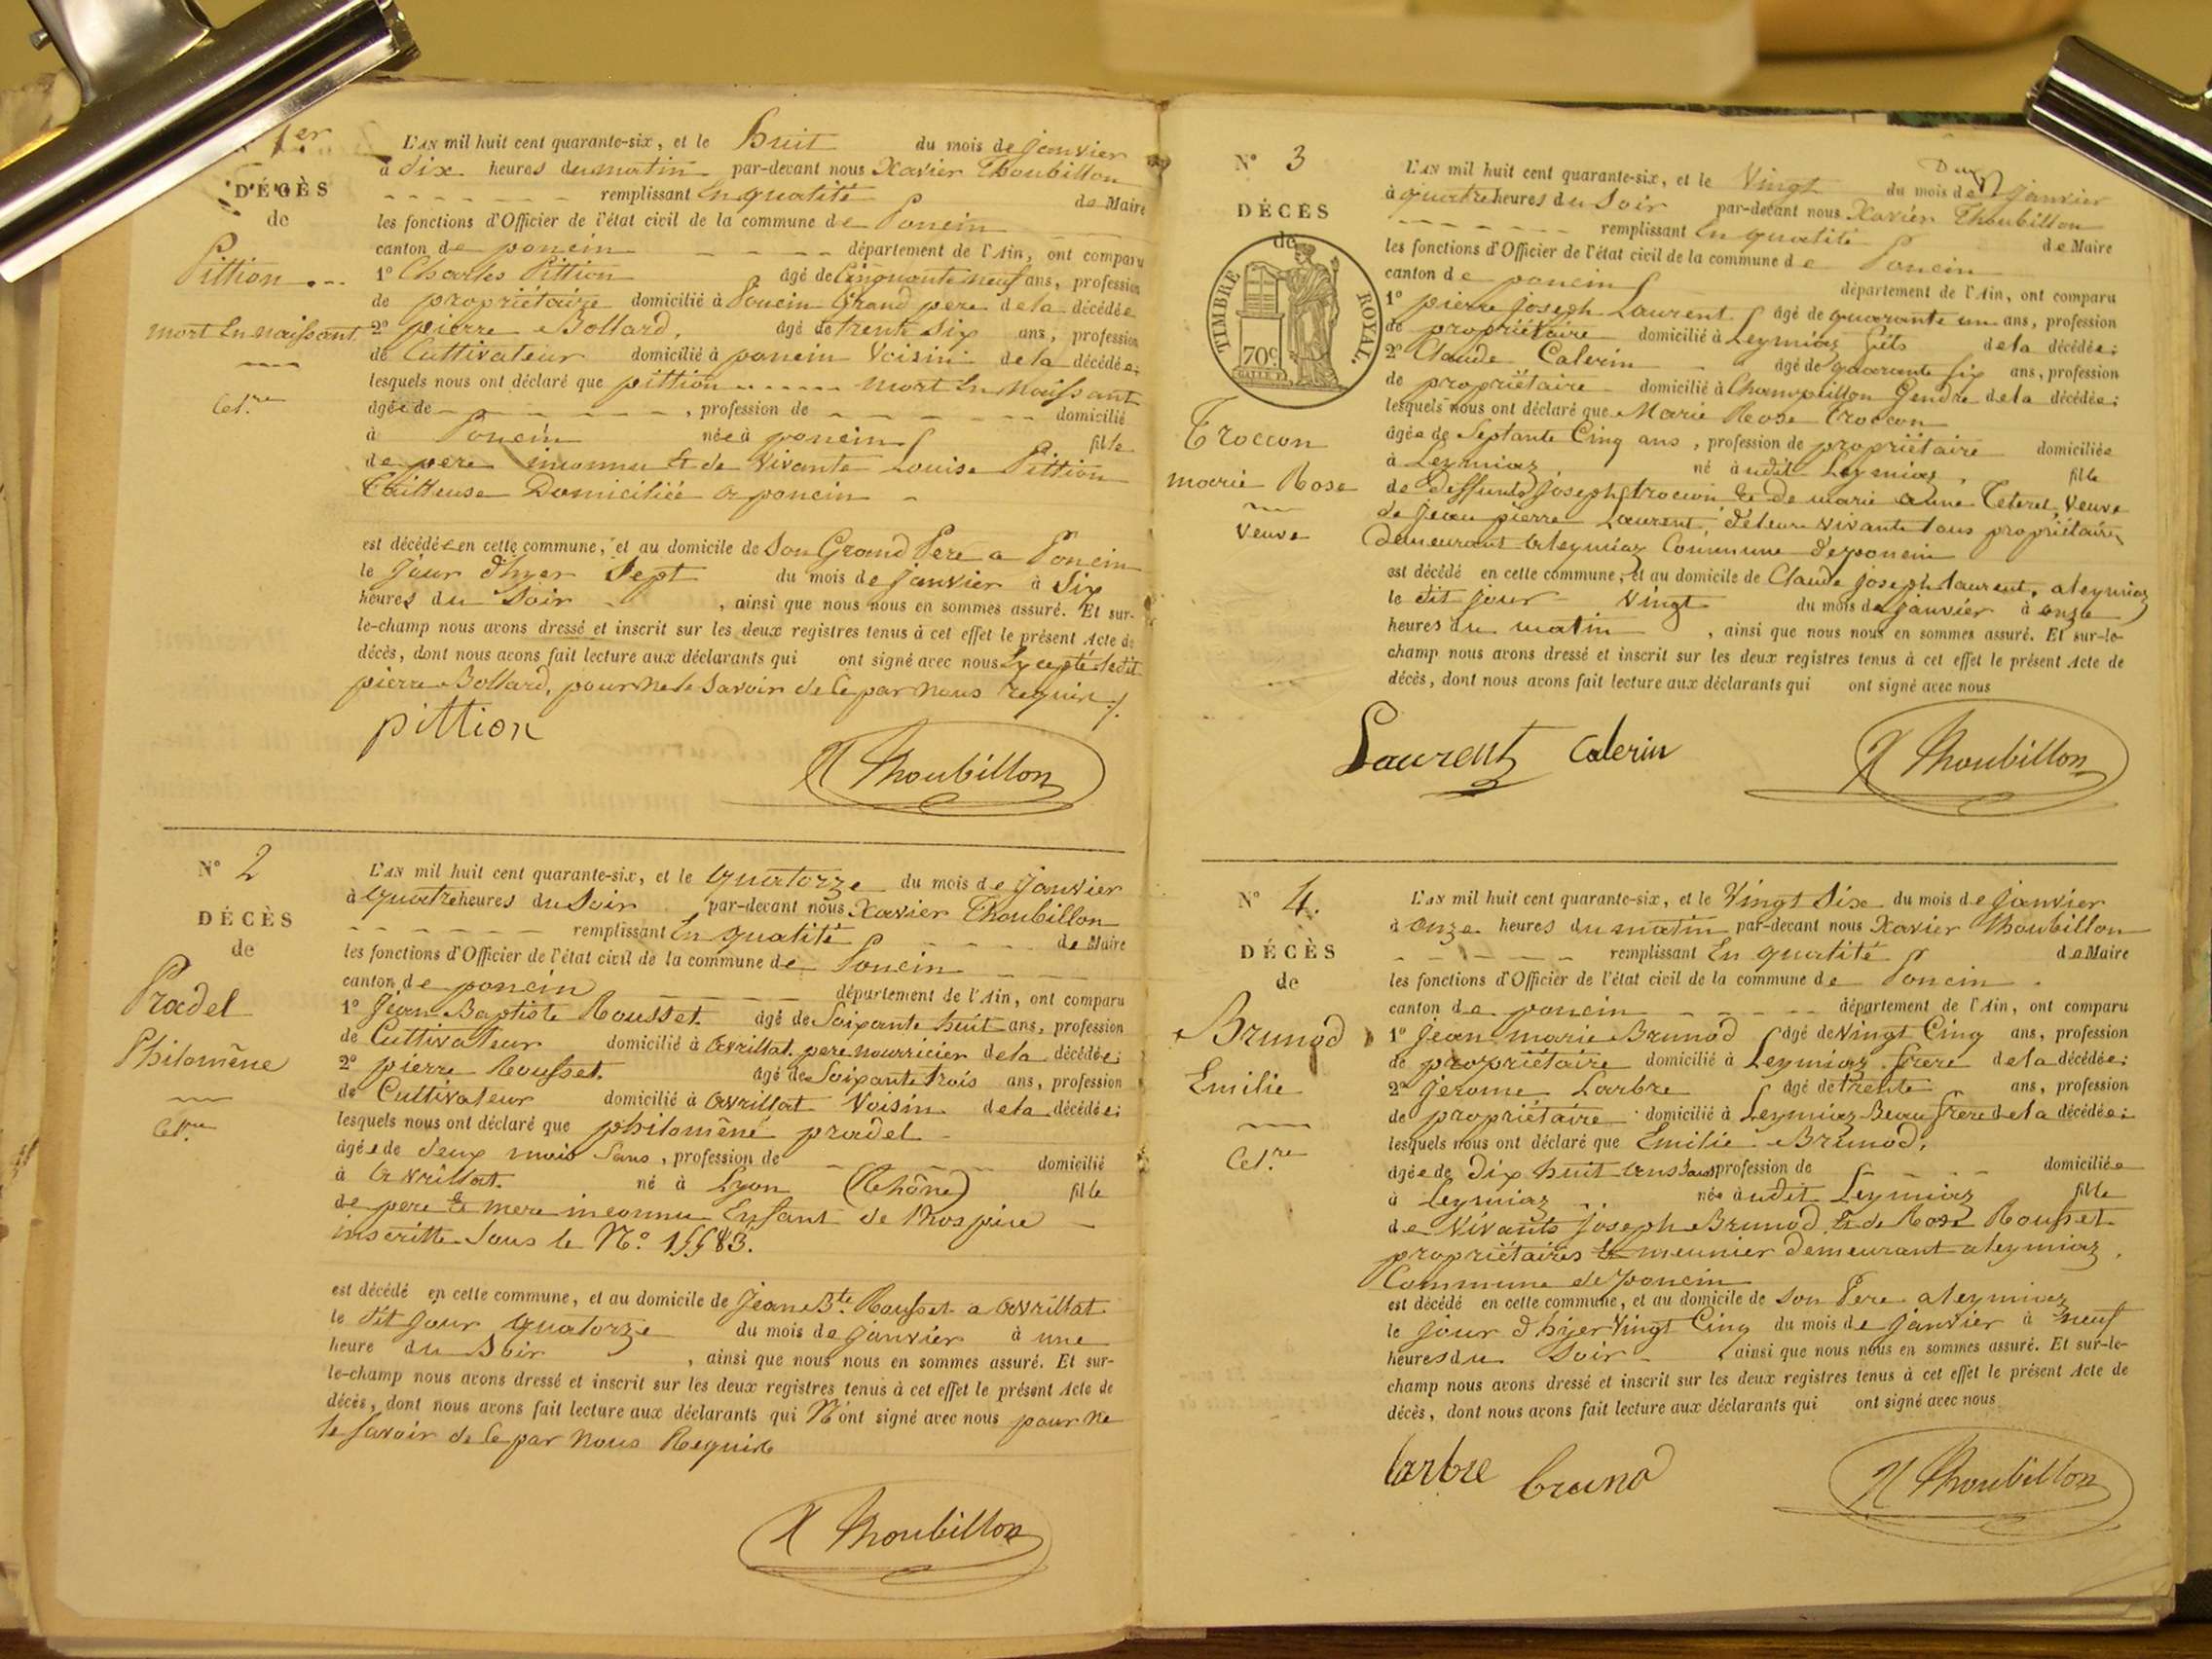 1er
DÉCÈS
de
Pittion
mort En naissant
Cel.re
L'AN mil huit cent quarante-six, et le huit du mois de janvier
à dix heures du matin par-devant nous Xavier Thoubillon
remplissant En qualité de Maire
les fonctions d'Officier de l'état civil de la commune de Poncin
canton de poncin département de l'Ain, ont comparu
1° Charles Pittion âgé de Cinquante neuf ans, profession
de propriétaire domicilié à Poncin Grand pere de la décédée
2° pierre Bollard, âgé de trente six ans, profession
de Cultivateur domicilié à poncin Voisin de la décédée;
lesquels nous ont déclaré que pittion mort En Naissant
âgée de , profession de domicilié
à Poncin née à poncin fille
de pere inconnu Et de Vivante Louise Pittion
Domiciliée a poncin
est décédée en cette commune, et au domicile de Son Grand Pere a Poncin
le jour d'hyer Sept du mois de janvier à Six
heures du Soir , ainsi que nous nous en sommes assuré. Et sur-
le-champ nous avons dressé et inscrit sur les deux registres tenus à cet effet le présent Acte de
décès, dont nous avons fait lecture aux déclarants qui ont signé avec nous Excepté ledit
pierre Bollard, pour ne le Savoir de Ce par Nous requis ./.
pittion
X Thoubillon
N° 2
DÉCÈS
de
Pradel
Philomène
Cel.re
L'AN mil huit cent quarante-six, et le quatorze du mois de janvier
à quatre heures du Soir par-devant nous Xavier Thoubillon
remplissant En qualité de Maire
les fonctions d'Officier de l'état civil de la commune de Poncin
canton de poncin département de l'Ain, ont comparu
1° Jean Baptiste Rousset âgé de Soixante huit ans, profession
de Cultivateur domicilié à avrillat pere nourricier de la décédée;
2° pierre Rousset. âgé de Soixante trois ans, profession
de Cultivateur domicilié à avrillat Voisin de la décédée;
lesquels nous ont déclaré que philomêne pradel
âgée de deux mois Sans , profession de domicilié
à avrillat. né à Lyon (Rhône) fille
de pere Et mere inconnu Enfant de l'hospice
inscritte Sous le N° 15583.
est décédé en cette commune, et au domicile de Jean Bte Rousset a avrillat
le dit jour quatorze du mois de janvier à une
heure du Soir , ainsi que nous nous en sommes assuré. Et sur-
le-champ nous avons dressé et inscrit sur les deux registres tenus à cet effet le présent Acte de
décès, dont nous avons fait lecture aux déclarants qui N'ont signé avec nous pour ne
le savoir de Ce par Nous Requis
X Thoubillon
N° 3
DÉCÈS
de
TIMBRE ROYAL.
70c
Troccon
marie Rose
Veuve
L'AN mil huit cent quarante-six, et le Vingt du mois de janvier
à quatre heures du Soir par-devant nous Xavier Thoubillon
remplissant En qualité de Maire
les fonctions d'Officier de l'état civil de la commune de Poncin
canton de poncin département de l'Ain, ont comparu
1° pierre joseph Laurent âgé de quarante un ans, profession
de propriétaire domicilié à Leymiaz fils de la décédée;
2° Claude Calerin âgé de quarante six ans, profession
de propriétaire domicilié à Champeillon Gendre de la décédée;
lesquels nous ont déclaré que Marie Rose Troccon
âgée de Septante Cinq ans , profession de propriétaire domiciliée
à Leymiaz, né à udit Leymiaz, fille
de deffunts joseph troccon Et de marie anne Teteret, Veuve
de jean pierre Laurent. de leur vivante tous propriétaires
demeurant a leymiaz Commune de poncin
est décédé en cette commune, et au domicile de Claude joseph laurent, a leymiaz
le dit jour Vingt du mois de janvier à onze
heures du matin , ainsi que nous nous en sommes assuré. Et sur-le-
champ nous avons dressé et inscrit sur les deux registres tenus à cet effet le présent Acte de
décès, dont nous avons fait lecture aux déclarants qui ont signé avec nous
Laurent Calerin
X Thoubillon
N° 4.
DÉCÈS
de
Brunod
Emilie
Cel.re
L'AN mil huit cent quarante-six, et le Vingt Six du mois de janvier
à onze heures du matin par-devant nous Xavier Thoubillon
remplissant En qualité de Maire
les fonctions d'Officier de l'état civil de la commune de Poncin
canton de poncin département de l'Ain, ont comparu
1° jean marie Brunod âgé de Vingt Cinq ans, profession
de propriétaire domicilié à Leymiaz frere de la décédée;
2° jerome Larbre âgé de trente ans, profession
de propriétaire domicilié à Leymiaz Beau frere de la décédée;
lesquels nous ont déclaré que Emilie Brunod,
âgée de dix huit ans Sans profession de domiciliée
à Leymiaz née à udit Leymiaz fille
de Vivants joseph Brunod Et de Rose Rousset
propriétaires Et meunier demeurant a leymiaz,
Commune de poncin
est décédé en cette commune, et au domicile de son Pere a leymiaz
le jour d'hyer Vingt Cinq du mois de janvier à neuf
heures du Soir , ainsi que nous nous en sommes assuré. Et sur-le-
champ nous avons dressé et inscrit sur les deux registres tenus à cet effet le présent Acte de
décès, dont nous avons fait lecture aux déclarants qui ont signé avec nous
larbre brunod
X Thoubillon